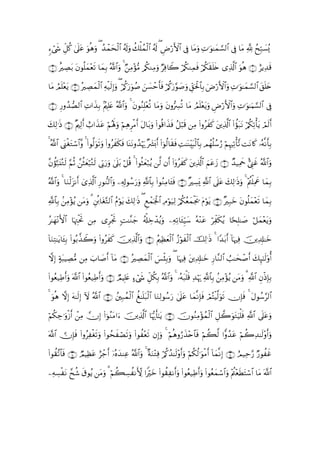 يُسَبِّحُ لِلَّهِ مَا فِي ٱلسَّمَٰوَٰتِ وَمَا فِي ٱلْأَرْضِ ۖ لَهُ ٱلْمُلْكُ وَلَهُ ٱلْحَمْدُ ۖ وَهُوَ عَلَىٰ كُلِّ شَىْءٍ
قَدِيرٌ ﴿١﴾ هُوَ ٱلَّذِى خَلَقَكُمْ فَمِنكُمْ كَافِرٌ وَمِنكُم مُّؤْمِنٌ ۚ وَٱللَّهُ بِمَا تَعْمَلُونَ بَصِيرٌ ﴿٢﴾
خَلَقَ ٱلسَّمَٰوَٰتِ وَٱلْأَرْضَ بِٱلْحَقِّ وَصَوَّرَكُمْ فَأَحْسَنَ صُوَرَكُمْ ۖ وَإِلَيْهِ ٱلْمَصِيرُ ﴿٣﴾ يَعْلَمُ مَا
فِى ٱلسَّمَٰوَٰتِ وَٱلْأَرْضِ وَيَعْلَمُ مَا تُسِرُّونَ وَمَا تُعْلِنُونَ ۚ وَٱللَّهُ عَلِيمٌۢ بِذَاتِ ٱلصُّدُورِ ﴿٤﴾
أَلَمْ يَأْتِكُمْ نَبَؤُا۟ ٱلَّذِينَ كَفَرُوا۟ مِن قَبْلُ فَذَاقُوا۟ وَبَالَ أَمْرِهِمْ وَلَهُمْ عَذَابٌ أَلِيمٌ ﴿٥﴾ ذَٰلِكَ
بِأَنَّهُۥ كَانَت تَّأْتِيهِمْ رُسُلُهُم بِٱلْبَيِّنَٰتِ فَقَالُوٓا۟ أَبَشَرٌ يَهْدُونَنَا فَكَفَرُوا۟ وَتَوَلَّوا۟ ۚ وَّٱسْتَغْنَى ٱللَّهُ ۚ
وَٱللَّهُ غَنِىٌّ حَمِيدٌ ﴿٦﴾ زَعَمَ ٱلَّذِينَ كَفَرُوٓا۟ أَن لَّن يُبْعَثُوا۟ ۚ قُلْ بَلَىٰ وَرَبِّى لَتُبْعَثُنَّ ثُمَّ لَتُنَبَّؤُنَّ
بِمَا عَمِلْتُمْ ۚ وَذَٰلِكَ عَلَى ٱللَّهِ يَسِيرٌ ﴿٧﴾ فَـَٔامِنُوا۟ بِٱللَّهِ وَرَسُولِهِۦ وَٱلنُّورِ ٱلَّذِىٓ أَنزَلْنَا ۚ وَٱللَّهُ
بِمَا تَعْمَلُونَ خَبِيرٌ ﴿٨﴾ يَوْمَ يَجْمَعُكُمْ لِيَوْمِ ٱلْجَمْعِ ۖ ذَٰلِكَ يَوْمُ ٱلتَّغَابُنِ ۗ وَمَن يُؤْمِنۢ بِٱللَّهِ
وَيَعْمَلْ صَٰلِحًا يُكَفِّرْ عَنْهُ سَيِّـَٔاتِهِۦ وَيُدْخِلْهُ جَنَّٰتٍ تَجْرِى مِن تَحْتِهَا ٱلْأَنْهَٰرُ
خَٰلِدِينَ فِيهَآ أَبَدًا ۚ ذَٰلِكَ ٱلْفَوْزُ ٱلْعَظِيمُ ﴿٩﴾ وَٱلَّذِينَ كَفَرُوا۟ وَكَذَّبُوا۟ بِـَٔايَٰتِنَآ
أُو۟لَٰٓئِكَ أَصْحَٰبُ ٱلنَّارِ خَٰلِدِينَ فِيهَا ۖ وَبِئْسَ ٱلْمَصِيرُ ﴿١٠﴾ مَآ أَصَابَ مِن مُّصِيبَةٍ إِلَّا
بِإِذْنِ ٱللَّهِ ۗ وَمَن يُؤْمِنۢ بِٱللَّهِ يَهْدِ قَلْبَهُۥ ۚ وَٱللَّهُ بِكُلِّ شَىْءٍ عَلِيمٌ ﴿١١﴾ وَأَطِيعُوا۟ ٱللَّهَ وَأَطِيعُوا۟
ٱلرَّسُولَ ۚ فَإِن تَوَلَّيْتُمْ فَإِنَّمَا عَلَىٰ رَسُولِنَا ٱلْبَلَٰغُ ٱلْمُبِينُ ﴿١٢﴾ ٱللَّهُ لَآ إِلَٰهَ إِلَّا هُوَ ۚ
وَعَلَى ٱللَّهِ فَلْيَتَوَكَّلِ ٱلْمُؤْمِنُونَ ﴿١٣﴾ يَٰٓأَيُّهَا ٱلَّذِينَ ءَامَنُوٓا۟ إِنَّ مِنْ أَزْوَٰجِكُمْ
وَأَوْلَٰدِكُمْ عَدُوًّا لَّكُمْ فَٱحْذَرُوهُمْ ۚ وَإِن تَعْفُوا۟ وَتَصْفَحُوا۟ وَتَغْفِرُوا۟ فَإِنَّ ٱللَّهَ
غَفُورٌ رَّحِيمٌ ﴿١٤﴾ إِنَّمَآ أَمْوَٰلُكُمْ وَأَوْلَٰدُكُمْ فِتْنَةٌ ۚ وَٱللَّهُ عِندَهُۥٓ أَجْرٌ عَظِيمٌ ﴿١٥﴾ فَٱتَّقُوا۟
ٱللَّهَ مَا ٱسْتَطَعْتُمْ وَٱسْمَعُوا۟ وَأَطِيعُوا۟ وَأَنفِقُوا۟ خَيْرًا لِّأَنفُسِكُمْ ۗ وَمَن يُوقَ شُحَّ نَفْسِهِۦ